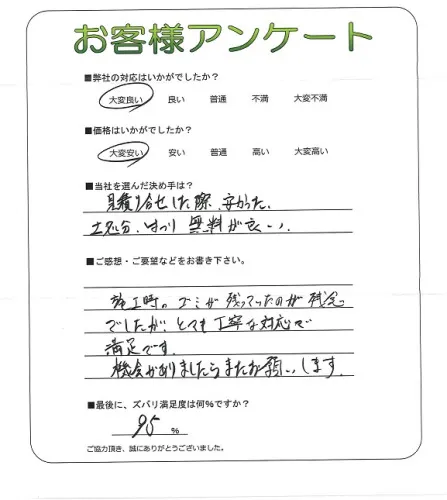 お客様アンケート
■弊社の対応はいかがでしたか?
大変良い 良い 普通 不満 大変不満
■価格はいかがでしたか?
大変安い 安い 普通 高い 大変高い
■当社を選んだ決め手は?
見積り合せした際、安かった。
土処分、はつり 無料が良い。
■ご感想・ご要望などをお書き下さい。
施工時のゴミが残ってったのが残念
でしたが、とても丁寧な対応で
満足です。
機会がありましたらまたお願いします。
■最後に、ズバリ満足度は何%ですか?
95 %
ご協力頂き、誠にありがとうございました。